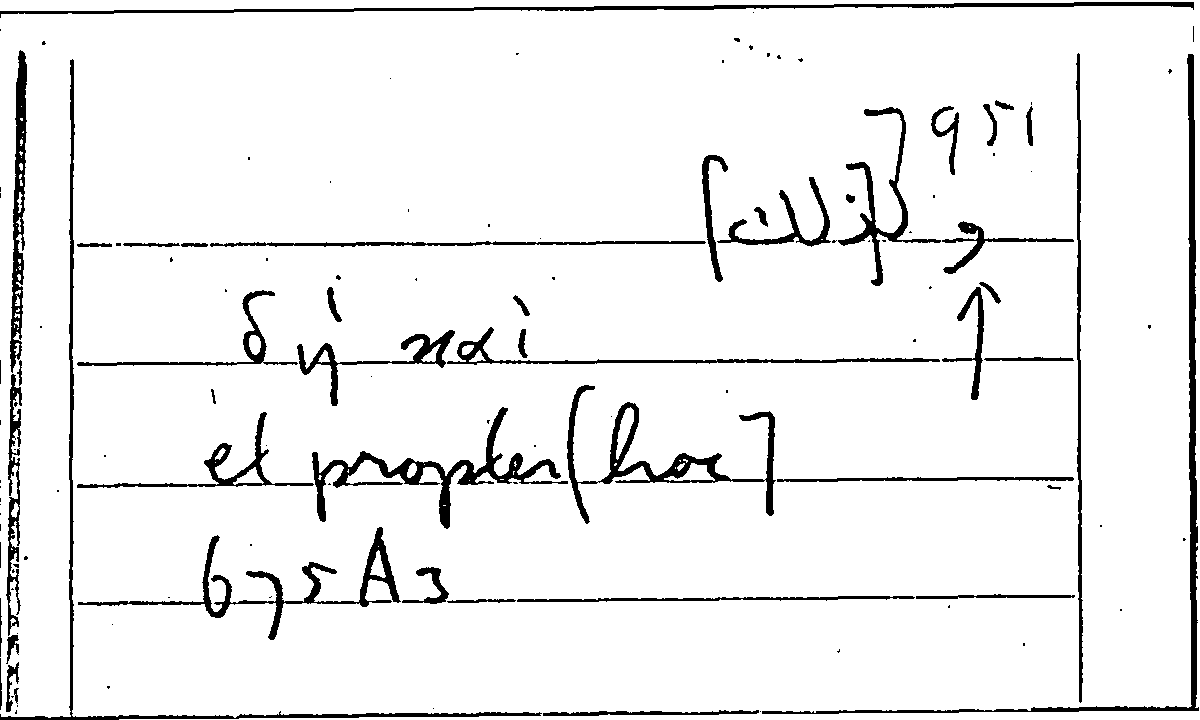 951
و
δὴ καὶ
et propter [hoc]
675 A3